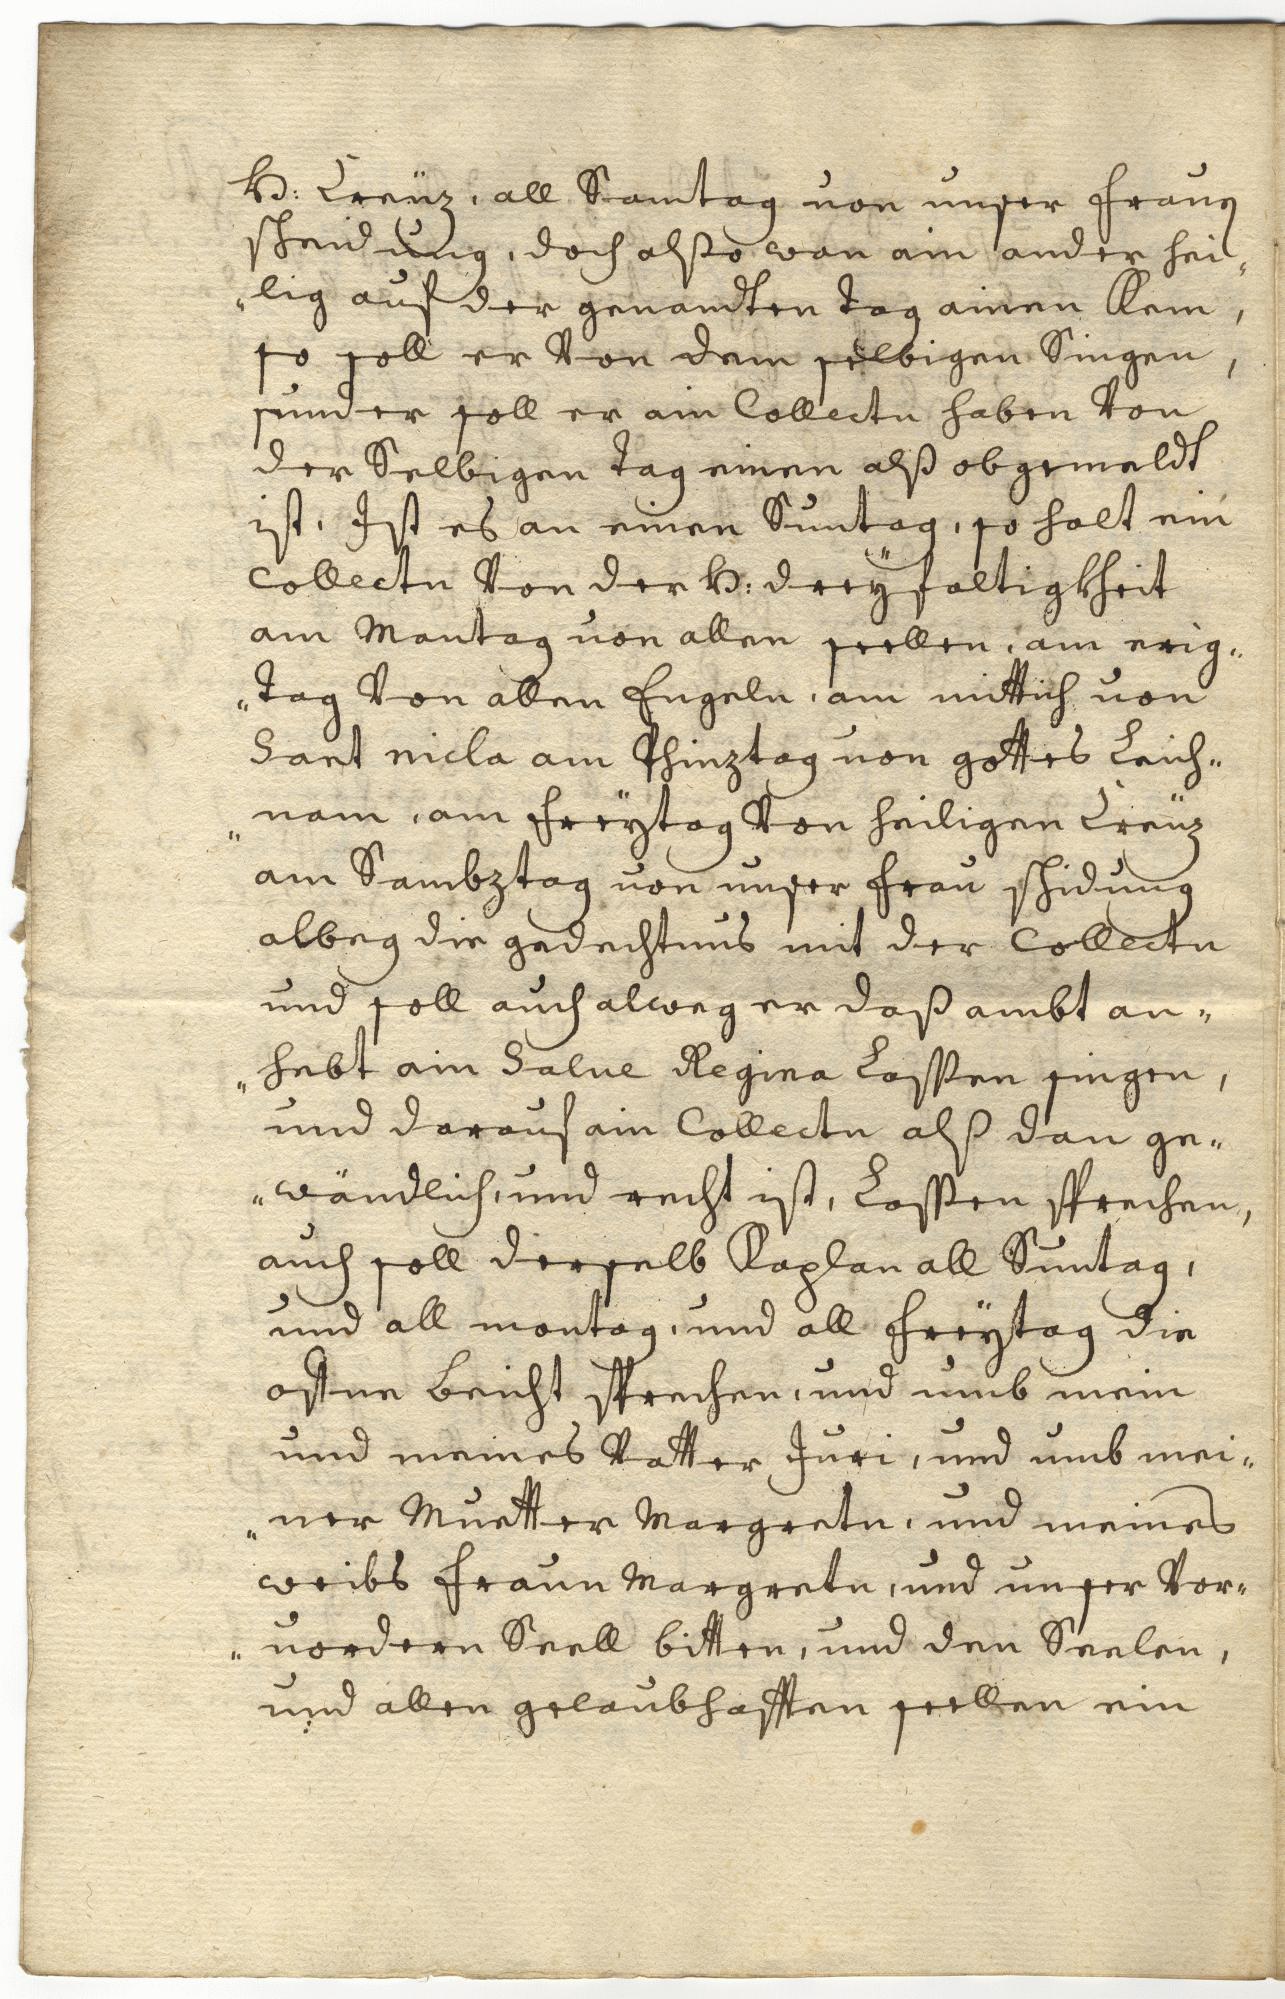 H: Creüz, all Samtag von unser Frauen
scheidung, doch alßo wan ain ander hei„
„lig auf der genandten Tag ainen Kem,
so soll er Von dem selbigen Singen,
sunder soll er ain Collecten haben Von
der Selbigen Tag einen alß obgemeldt
ist, Ist es an einen Suntag, so halt ein
Collecten Von der H: dreÿfaltigkheit
am Montag von allen seellen, am erig„
„Tag Von allen Engeln, am mittich von
Sant nicla am Phinztag von gottes Leich„
„nam, am freÿtag Von heiligen Creüz
am Sambztag von unser Frau schidung
albeg die gedechtnus mit der Collecten
und soll auch alweg er daß ambt an„
„hebt ain Salve Regina Lassen singen,
und darauf ain Collecten alß dan ge„
„wändlich, und recht ist, Lassen sprechen,
auch soll derselb Kaplan all Suntag,
und all montag, und all freÿtag die
offne beicht sprechen, und umb mein
und meines Vatter Juri, und umb mei„
„ner Muetter Margreten, und meines
weibs Fraun Margreten, und unser Vor„
„vordern Seell bitten, und den Seelen,
und allen gelaubhafften seellen ein